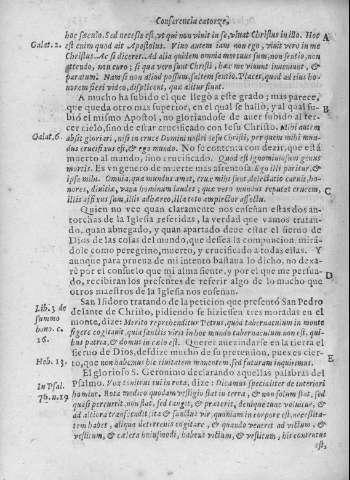 Conferencia catorze,
hoc sæculo. Sed necesse est, vt qui non viuit in se, viuat Christus in illo. Hoc
Galat. 2. est enim quod ait Apostolus. Viuo autem iam non ego, viuit vero in me
Christus. Ac si diceret. Ad alia quidem omnia mortuus sum, non sentio, non
attendo, non curo; si qua vero sunt Christi, hæc me viuum inueniunt, &
paratum. Nam si non aliud possum, saltem sentio. Placet, quod ad eius ho-
norem fieri video, displicent, quæ aliter fiunt.
A mucho ha subido el que llegò a este grado; mas parece,
que queda otro mas superior, en el qual se hallò, y al qual su-
biò el mismo Apostol, no gloriandose de auer subido al ter-
cero cielo, sino de estar crucificado con Iesu Christo. Mihi autem
Galat. 6. absit gloriari, nisi in cruce Domini nostri Iesu Christi, per quem mihi mun-
dus crucifixus est, & ego mundo. No se contenta con dezir, que està
muerto al mundo, sino crucificado. Quod est ignominiosum genus
mortis. Es vn genero de muerte mas afrentosa Ego illi pariter, &
ipse mihi. Omnia, quæ mundus amat, crux mihi sunt delectatio carnis, ho-
nores, diuitiæ, vana hominum laudes; quæ vero mundus reputat crucem,
illis affixus sum, illis adhæreo, illa toto amplector affectu.
Quien no vee quan claramente nos enseñan estas dos an-
torchas de la Iglesia referidas, la verdad que vamos tratan-
do, quan abnegado, y quan apartado deue estar el sieruo de
Dios de las cosas del mundo, que dessea la compuncion, mirã-
dole como peregrino, muerto, y crucificado a todas ellas. Y
aunque para prueua de mi intento bastaua lo dicho, no dexa-
rè por el consuelo que mi alma siente, y por el que me persua-
do, recibiran los presentes de referir algo de lo mucho que
otros maestros de la Iglesia nos enseñan.
San Isidoro tratando de la peticion que presentò San Pedro
Lib. 3 de delante de Christo, pidiendo se hiziessen tres moradas en el
summo monte, dize: Merito reprehenditur Petrus, quod tabernaculum in monte
bono. c. figere cogitaret, quia sanctis viris in hoc mundo tabernaculum non est, qui-
16. bus patria, & domus in cælo est. Querer auezindarse en la tierra el
sieruo de Dios, desdize mucho de su pretension, pues es cier-
Heb. 13. to, que non habemus hic ciuitatem manentem, sed futuram inquirimus.
El glorioso S. Geronimo declarando aquellas palabras del
In Psal. Psalmo. Vox tonitrui tui in rota, dize: Dicamus specialiter de interiori
76. n. 19 homine. Rota modico quodam vestigio stat in terra, & non solum stat, sed
quasi percurrit, non stat, sed tangit, & præterit, denique cum voluitur, &
ad altiora transcendit; ita & sanctus vir quoniam in corpore est, necessita-
tem habet, aliqua de terrenis cogitare, & quando venerit ad victum, &
vestitum, & cætera huiusmodi, habens victum, & vestitum, his contentus
est,
B
C
D
E